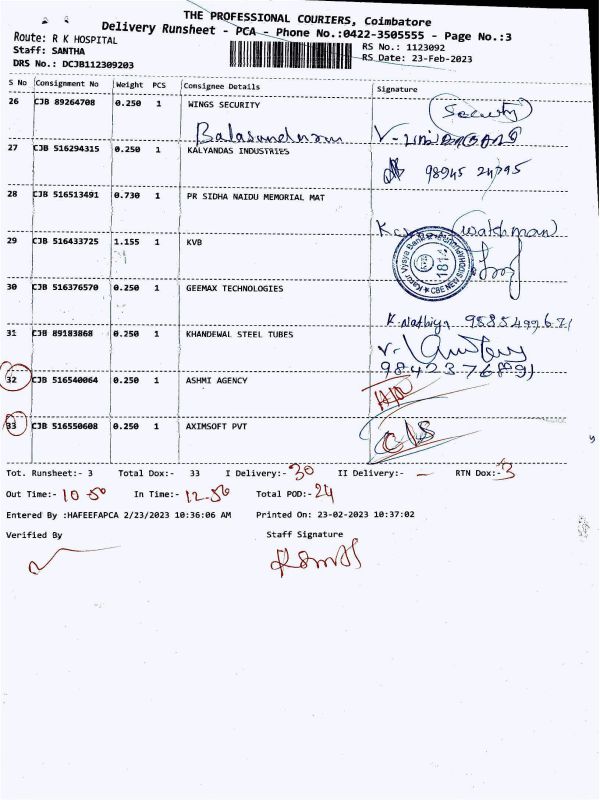 THE PROFESSIONAL COURIERS, Coimbatore
Delivery Runsheet - PCA - Phone No.:0422-3505555 - Page No.:3
Route: R K HOSPITAL
RS No.: 1123092
Staff: SANTHA
RS Date: 23-Feb-2023
DRS No.: DCJB112309203
S No Consignment No Weight PCS Consignee Details Signature
26 CJB 89264708 0.250 1 WINGS SECURITY
Security
Balasundaram
27 CJB 516294315 0.250 1 KALYANDAS INDUSTRIES
98945 24795
28 CJB 516513491 0.730 1 PR SIDHA NAIDU MEMORIAL MAT
(watchman)
29 CJB 516433725 1.155 1 KVB
Karur Vysya Bank
1814
30 CJB 516376570 0.250 1 GEEMAX TECHNOLOGIES
K. Nathiya
31 CJB 89183868 0.250 1 KHANDEWAL STEEL TUBES
32 CJB 516540064 0.250 1 ASHMI AGENCY
33 CJB 516550608 0.250 1 AXIMSOFT PVT
C/S
Tot. Runsheet:- 3 Total Dox:- 33 I Delivery:- 30 II Delivery:- — RTN Dox:- 3
Out Time:- 10-50 In Time:- 12-50 Total POD:- 24
Entered By :HAFEEFAPCA 2/23/2023 10:36:06 AM Printed On: 23-02-2023 10:37:02
Verified By Staff Signature